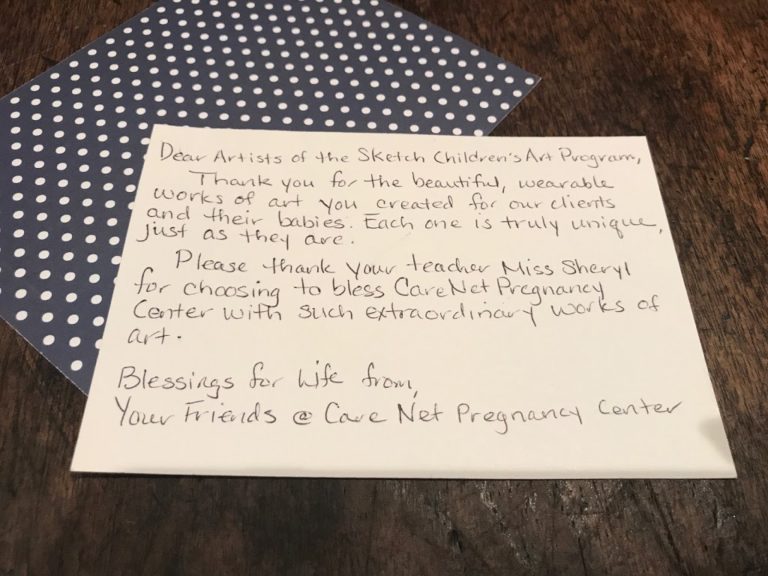 Dear Artists of the Sketch Children's Art Program,
Thank you for the beautiful, wearable
works of art you created for our clients
and their babies. Each one is truly unique,
just as they are.
Please thank your teacher Miss Sheryl
for choosing to bless CareNet Pregnancy
Center with such extraordinary works of
art.
Blessings for Life from,
Your Friends @ Care Net Pregnancy Center